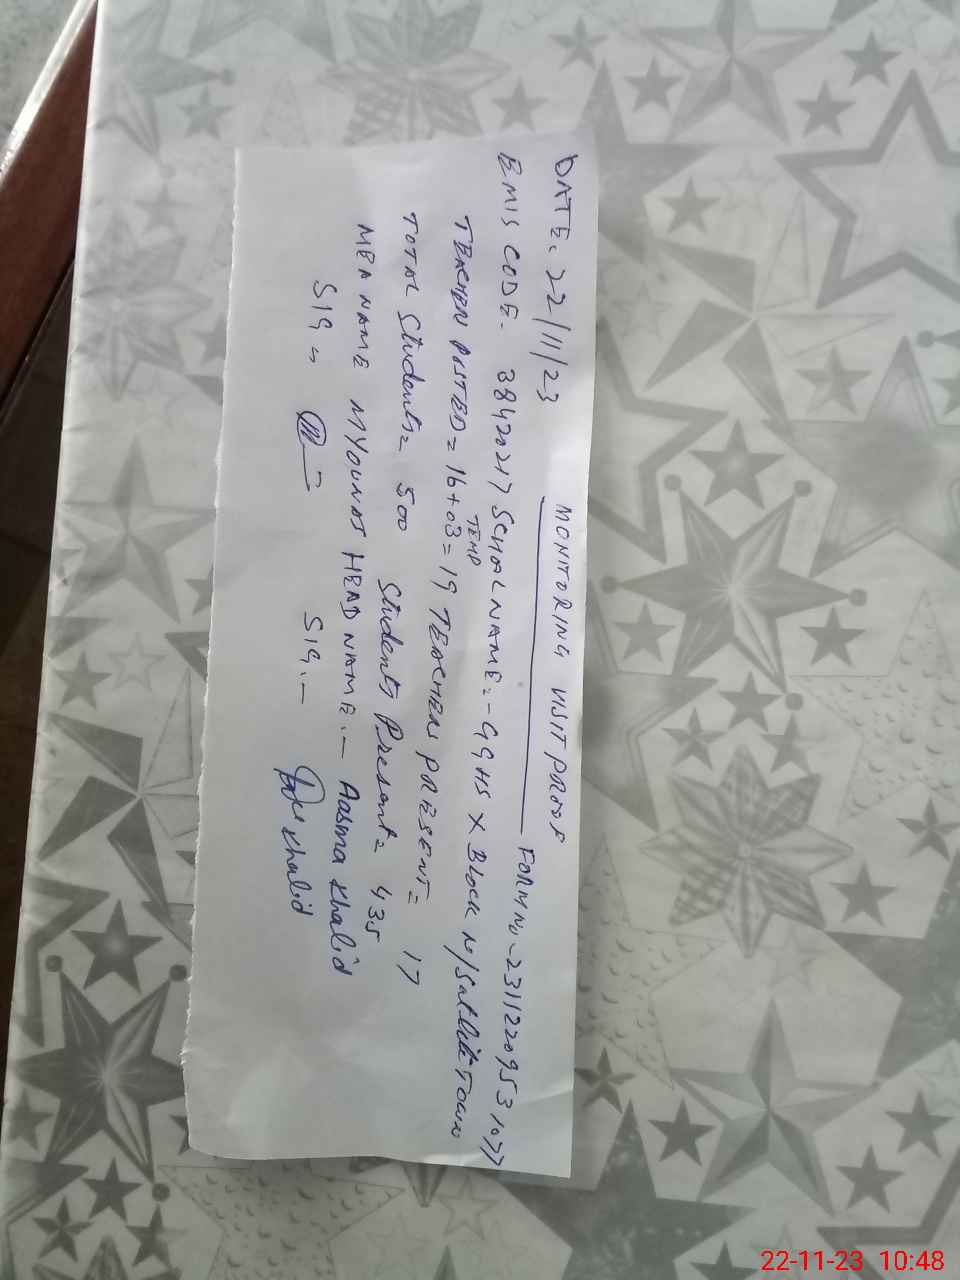 MONITORING VISIT PROOF
DATE. 22/11/23 FORM NO - 2311220953 1077
EMIS CODE. 38420217 SCHOOL NAME:- GGHS X Block N/Satellite Town
TEACHER POSTED = 16+03 = 19 TEACHERS PRESENT = 17
TEMP
TOTAL Students = 500 Students Present = 435
MEA NAME M YOUNAS HEAD NAME:- Aasma Khalid
SIG:- SIG:- Khalid
22-11-23 10:48